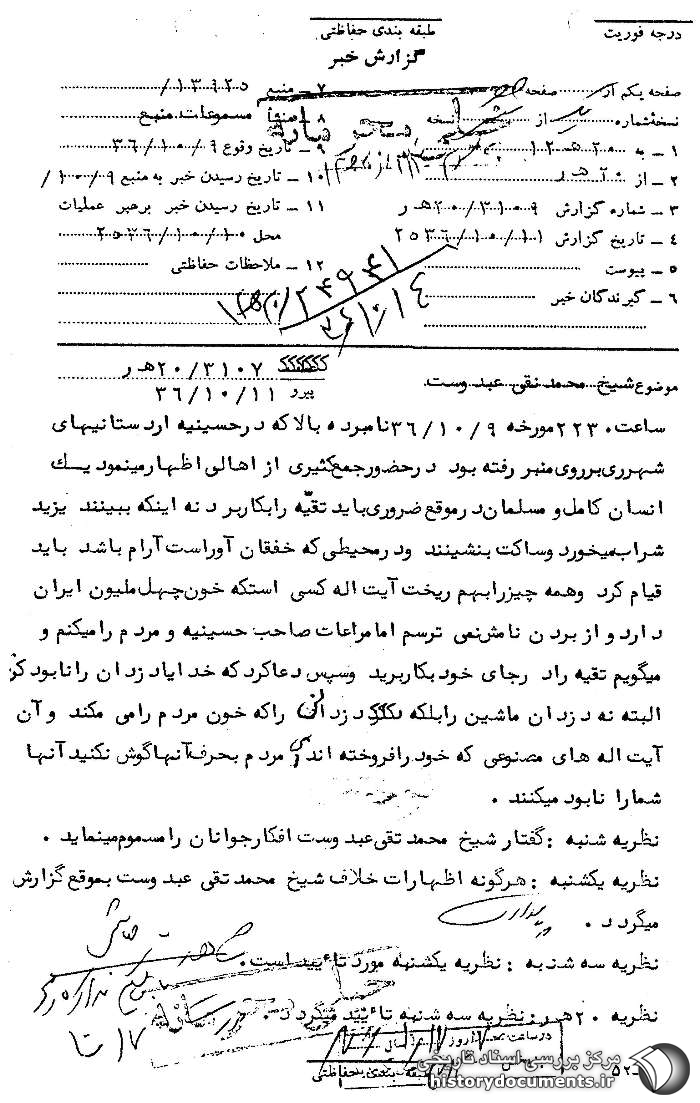 درجه فوریت
طبقه بندی حفاظتی
گزارش خبر
صفحه یکم از صفحه
۷ ـ منبع ۱۳۹۲۵/
نسخه شماره از نسخه
۸ ـ منشأ مسموعات منبع
۱ ـ به ۲۰ هـ ۱۲
۹ ـ تاریخ وقوع ۳۶/۱۰/۹
۲ ـ از ۲۰ هـ ر
۱۰ ـ تاریخ رسیدن خبر به منبع ۱۰/۹/
۳ ـ شماره گزارش ۲۰/۳۱۰۹ هـ ر
۱۱ ـ تاریخ رسیدن خبر برهبر عملیات
۴ ـ تاریخ گزارش ۲۵۳۶/۱۰/۱۱
محل ۲۵۳۶/۱۰/۱۰
۵ ـ پیوست
۱۲ ـ ملاحظات حفاظتی
۶ ـ گیرندگان خبر
۲۴۹۴۱
۳۶/۱۰/۱۴
موضوع شیخ محمد تقی عبد وست
۲۰/۳۱۰۷ هـ ر
پیرو ۳۶/۱۰/۱۱
ساعت ۲۲۳۰ مورخه ۳۶/۱۰/۹ نامبرده بالا که در حسینیه اردستانیهای
شهرری برروی منبر رفته بود در حضور جمع کثیری از اهالی اظهار مینمود یک
انسان کامل و مسلمان در موقع ضروری باید تقیّه را بکار برد نه اینکه ببینند یزید
شراب میخورد و ساکت بنشینند و در محیطی که خفقان آور است آرام باشد باید
قیام کرد و همه چیز را بهم ریخت آیت اله کسی استکه خون چهل ملیون ایران
دارد و از بردن نامش نمی ترسم اما مراعات صاحب حسینیه و مردم را میکنم و
میگویم تقیه را در جای خود بکار برید وسپس دعا کرد که خدایا دزدان را نابود کن
البته نه دزدان ماشین را بلکه دزدانی را که خون مردم را می مکند و آن
آیت اله های مصنوعی که خود را فروخته اند مردم بحرف آنها گوش نکنید آنها
شما را نابود میکنند .
نظریه شنبه : گفتار شیخ محمد تقی عبد وست افکار جوانان را مسموم مینماید .
نظریه یکشنبه : هرگونه اظهارات خلاف شیخ محمد تقی عبد وست بموقع گزارش
میگردد .
نظریه سه شنبه : نظریه یکشنبه مورد تائید است .
نظریه ۲۰ هـ ر : نظریه سه شنبه تائید میگردد .
در ساعت روز سال
طبقه بندی حفاظتی
۵۲ـ
مرکز بررسی اسناد تاریخی
historydocuments.ir